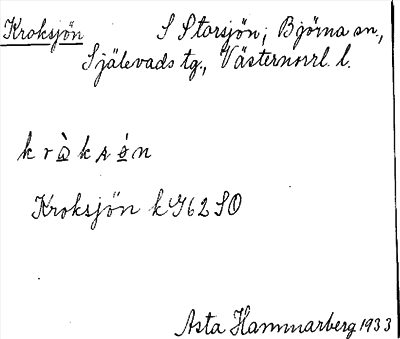 Kroksjön S Storsjön; Björna sn.,
Själevads tg., Västernorrl. l.
k r ò̱ k s ø̱ n
Kroksjön k 962 SO
Asta Hammarberg 1933